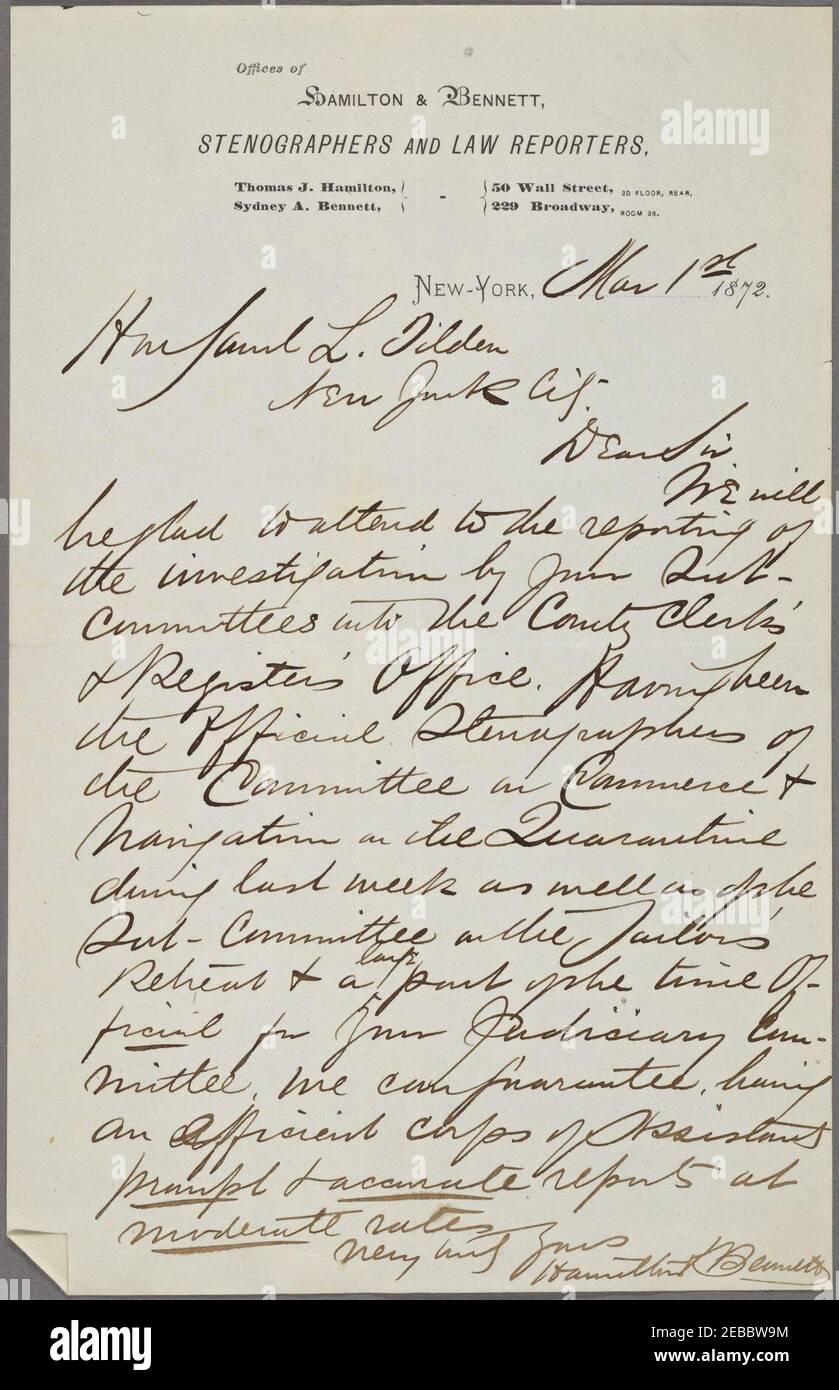 Offices of
Hamilton & Bennett,
STENOGRAPHERS AND LAW REPORTERS,
Thomas J. Hamilton, - 50 Wall Street, 2D FLOOR, REAR,
Sydney A. Bennett, 229 Broadway, ROOM 38.
New-York, Mar 1st 1872.
Hon Saml L. Tilden
New York City
Dear Sir
We will
be glad to attend to the reporting of
the investigation by your Sub-
Committees into the County Clerk's
& Register's Office. Having been
the Official Stenographers of
the Committee on Commerce &
Navigation on the Quarantine
during last week as well as of the
Sub-Committee on the Sailor's
Retreat & a large part of the time Of-
ficial for your Judiciary Com-
mittee, we can guarantee, having
an efficient corps of Assistants
prompt & accurate reports at
moderate rates
Very truly Yours
Hamilton & Bennett
alamy
Image ID: 2EBBW9M
www.alamy.com